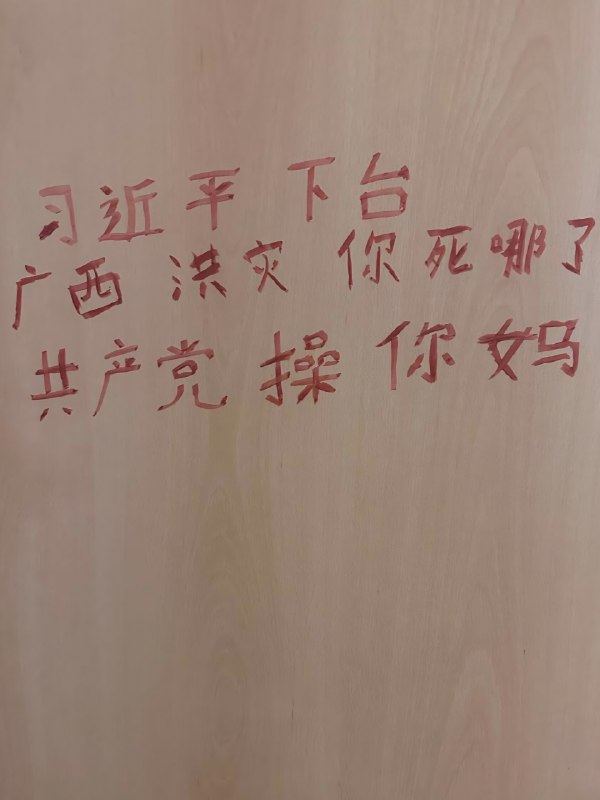 习近平 下台
广西 洪灾 你死哪了
共产党 操 你妈